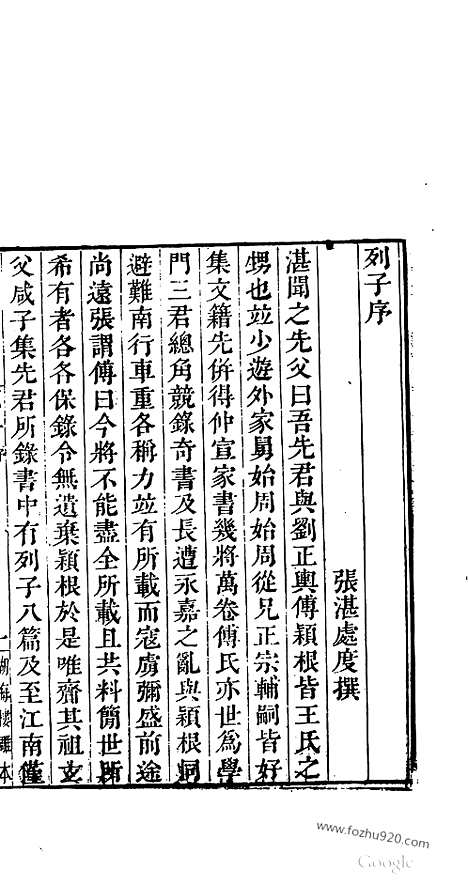 列子序
張湛處度撰
湛聞之先父曰吾先君與劉正輿傅穎根皆王氏之
甥也並少遊外家舅始周始周從兄正宗輔嗣皆好
集文籍先併得仲宣家書幾將萬卷傅氏亦世為學
門三君總角競錄奇書及長遭永嘉之亂與穎根同
避難南行車重各稱力並有所載而寇虜彌盛前途
尚遠張謂傅曰今將不能盡全所載且共料簡世所
希有者各各保錄令無遺棄穎根於是唯齎其祖玄
父咸子集先君所錄書中有列子八篇及至江南僅
www.fozhu920.com
Google